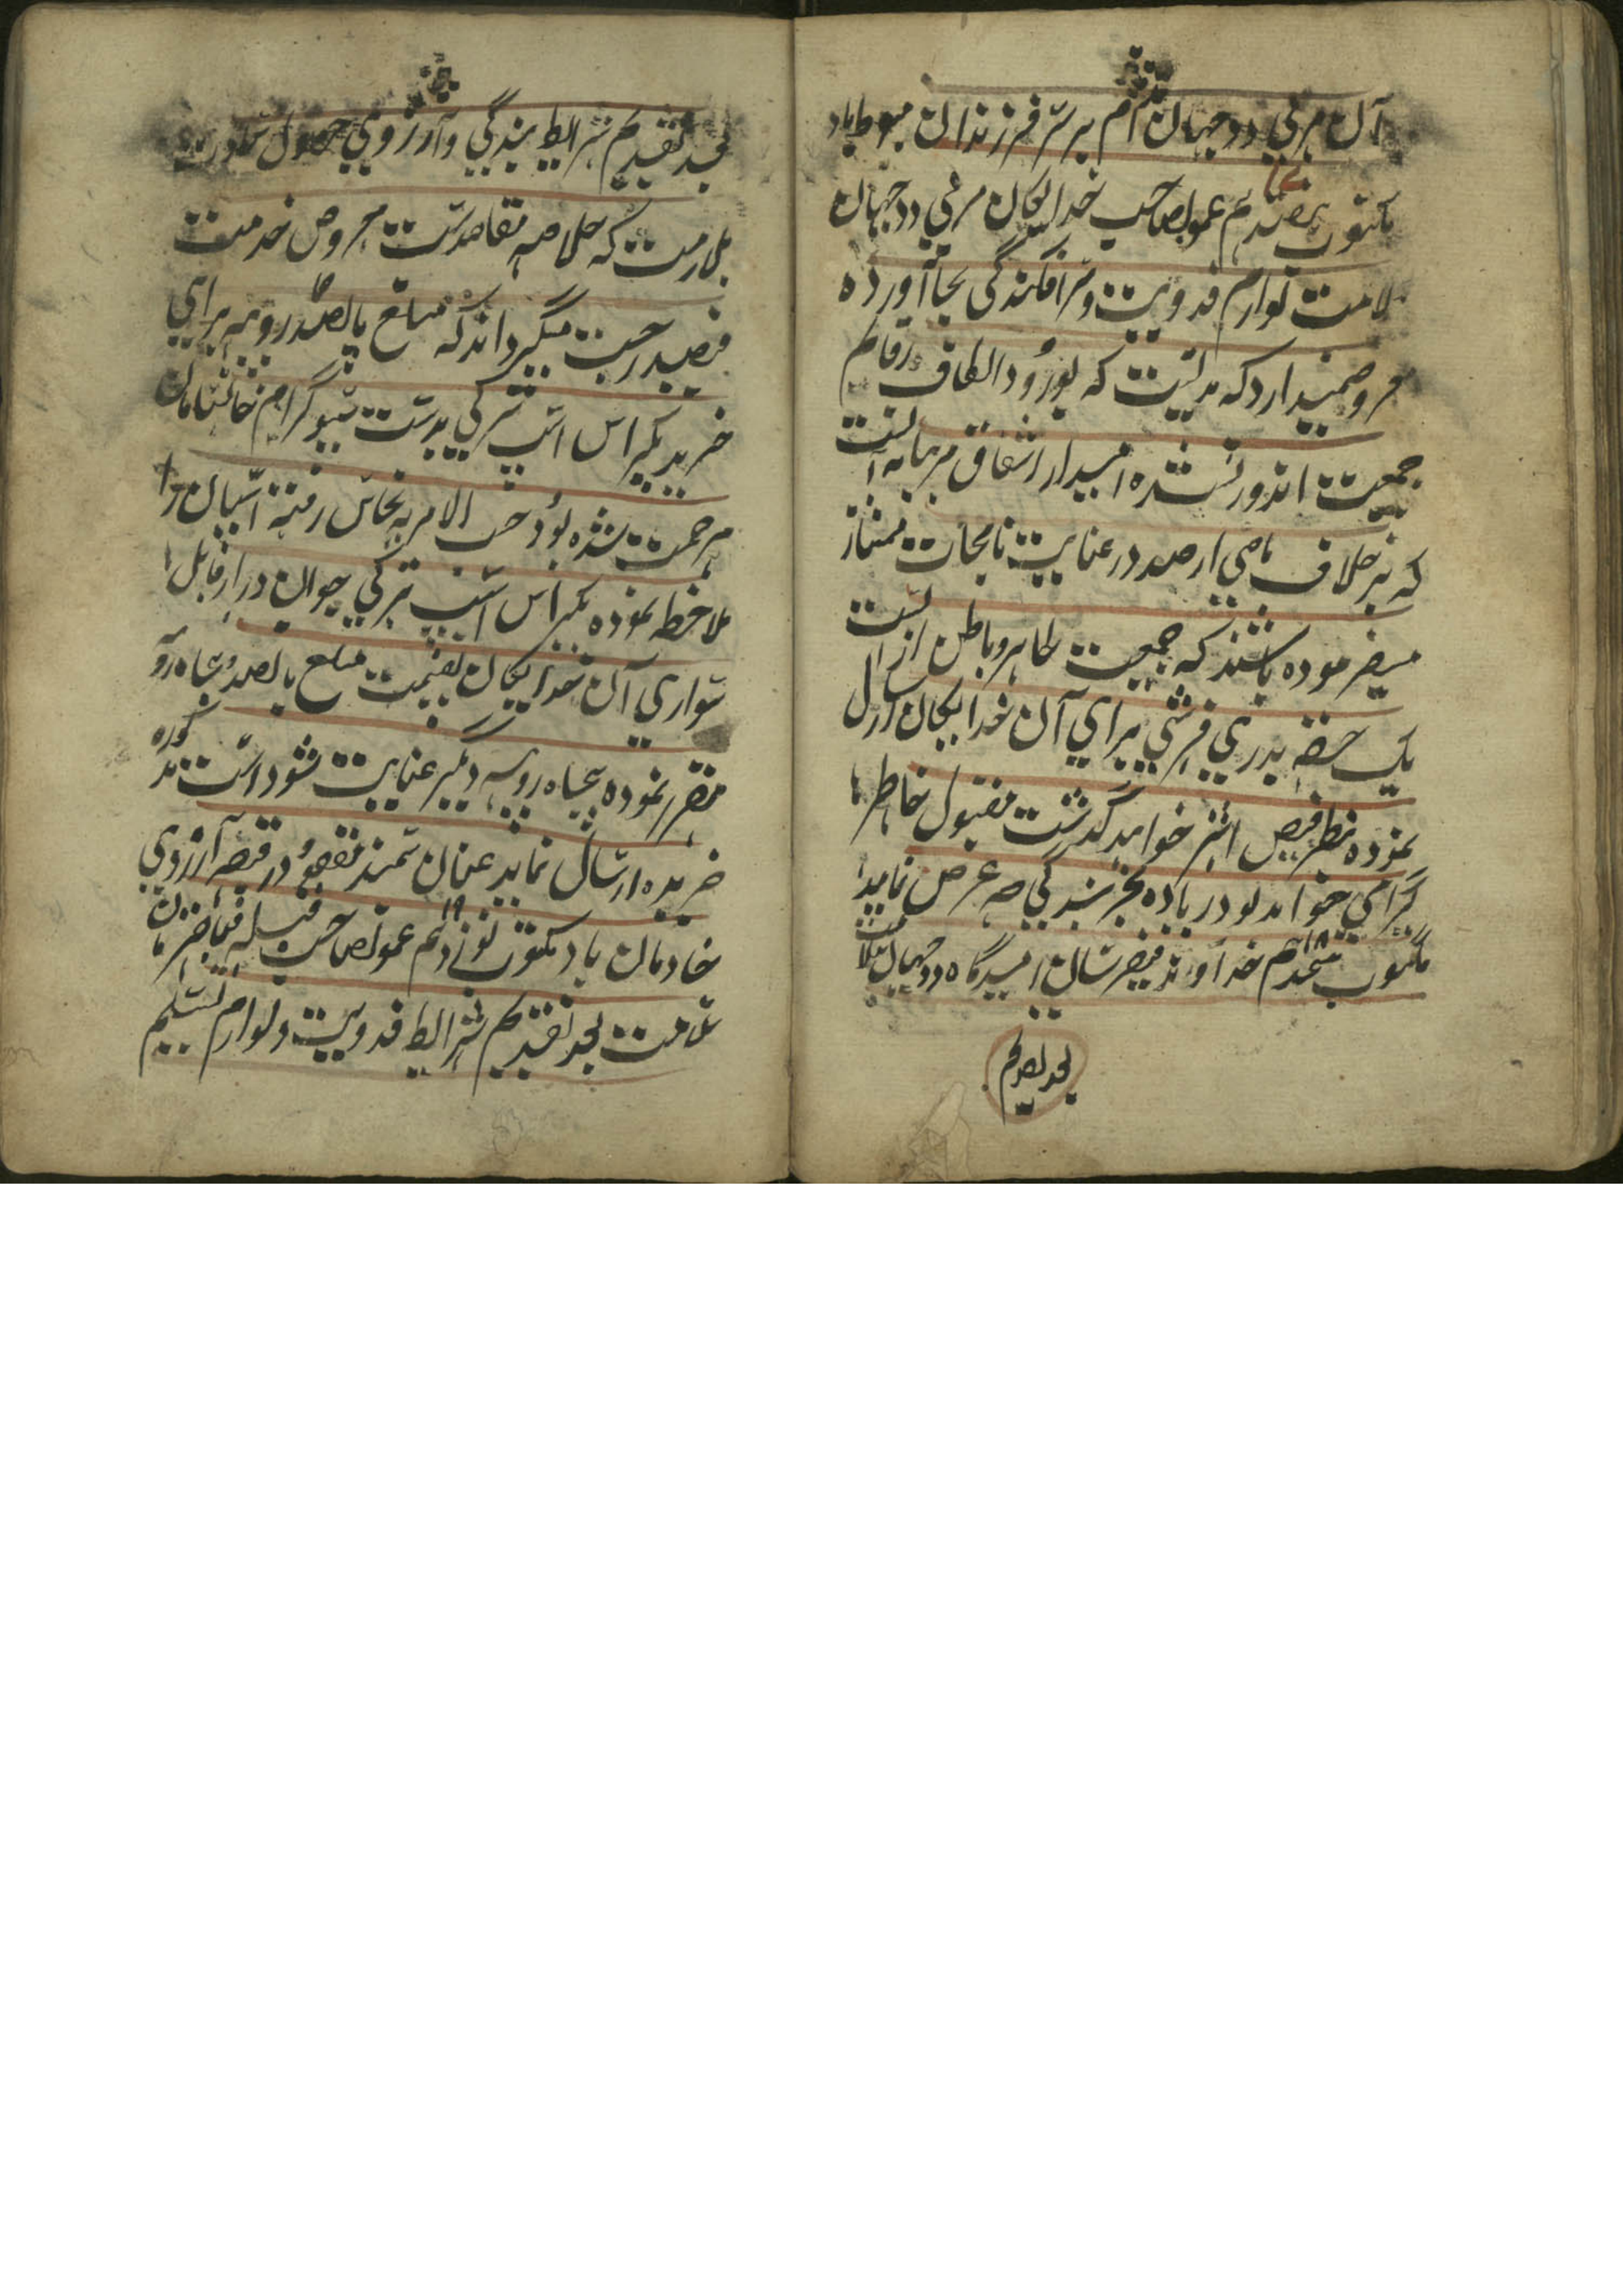 آن مربی دو جهان دایم بر سر فرزندان مبسوط باد
مکتوب هفدهم عموصاحب خدایگان مربی دو جهان
سلامت لوازم فدویت و سرافکندگی بجا آورده
معروض میدارد که مدتیست که بورود الطاف رقایم
جمعیت اندوز نشده امیدوار اشفاق مربیانه آنست
که بر خلاف ماضی ارصدور عنایت نامجات ممتاز
میفرموده باشند که جمعیت ظاهر و باطن از آنست
یک حقه بدری فرشی برای آن خدایگان ارسال
نموده بنظر فیض اثر خواهد گذشت مقبول خاطر
گرامی خواهد بود زیاده بجز بندگی چه عرض نماید
مکتوب هیجدهم ۱۸ خداوند فیضرسان امیدگاه دو جهان سلامت
بعد تقدیم
بعد تقدیم شرایط بندگی و آرزوی حصول سعادت
ملازمت که خلاصه مقاصد است معروض خدمت
فیضدرجت میگرداند که مبلغ پانصد روپیه برای
خرید یکراس اسپ ترکی بدست سیوکرام خانسامان
مرحمت شده بود حسب الامر به نخاس رفته اسپان را
ملاحظه نموده یکراس اسپ ترکی جوان دراز قابل
سواری آن خدایگان بقیمت مبلغ پانصد و پنجاه روپیه
مقرر نموده پنجاه روپیه دیگر عنایت شود اسپ مذکوره
خریده ارسال نماید عنان سمند مقصود در قبضه آرزوی
خادمان باد مکتوب نوزدهم ۱۹ عموصاحب قبله فیاض زمان
سلامت بعد تقدیم شرایط فدویت و لوازم تسلیم